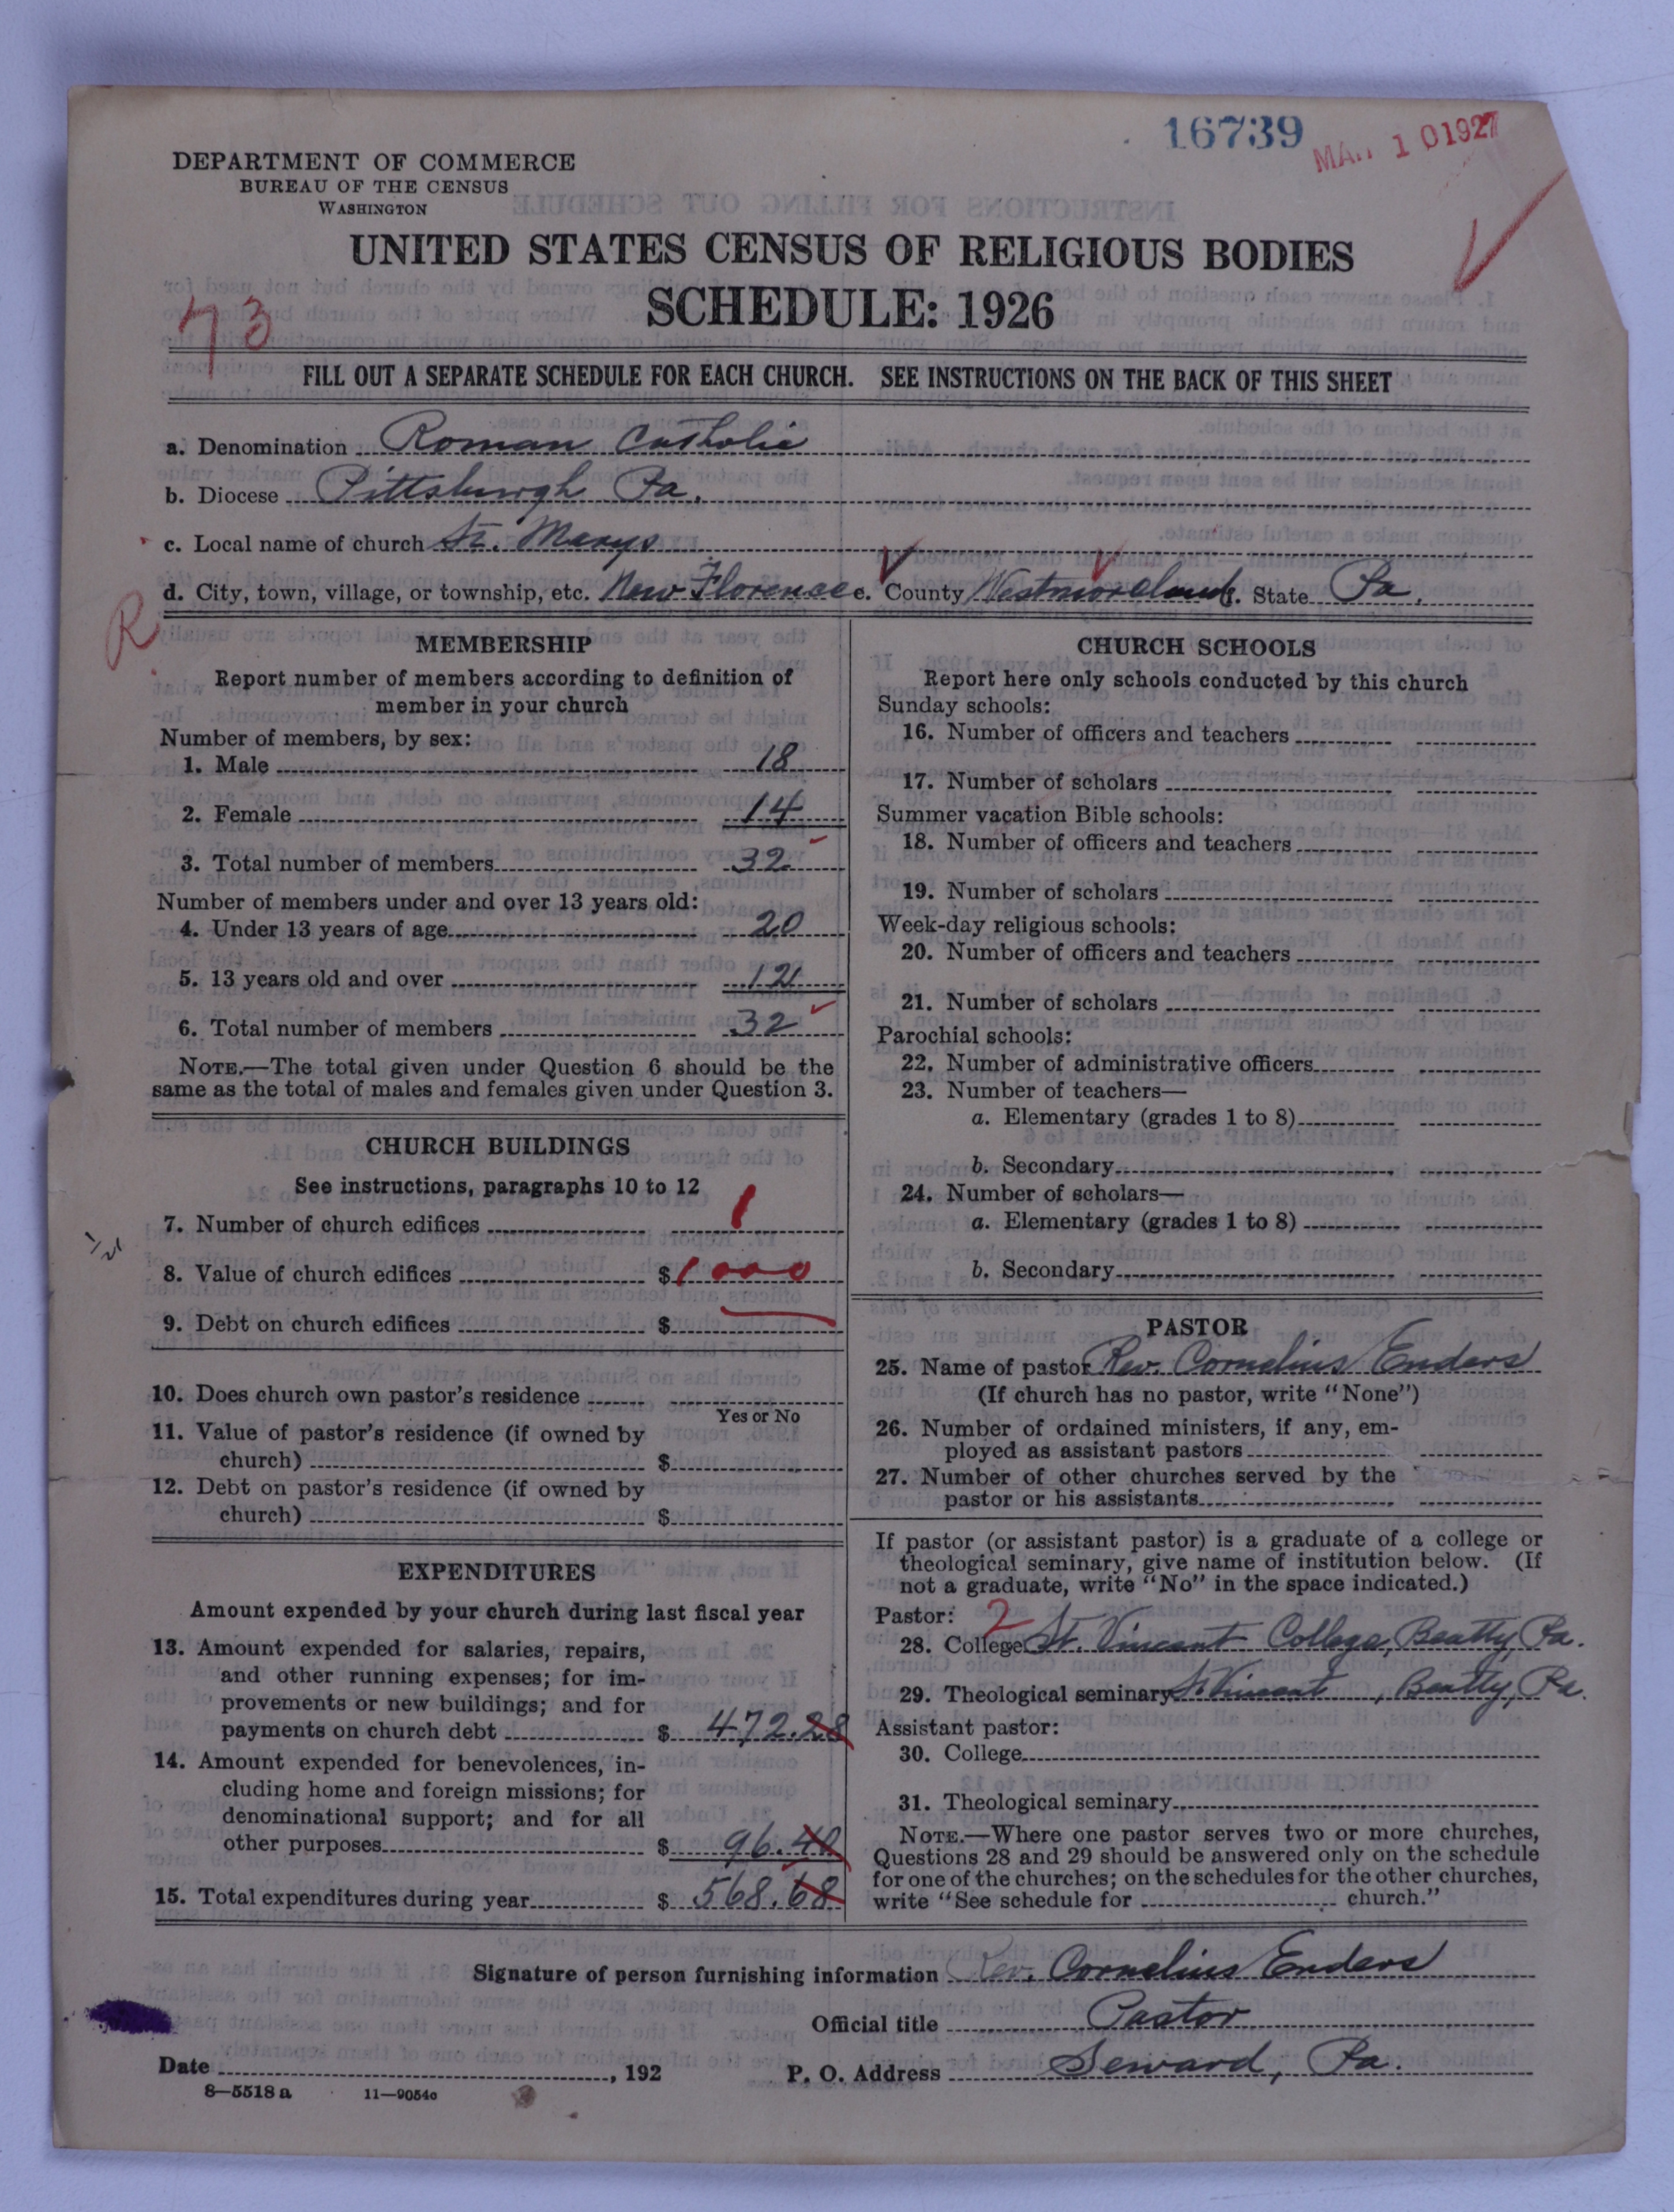 16739
MAR 10 1927
DEPARTMENT OF COMMERCE
BUREAU OF THE CENSUS
WASHINGTON
UNITED STATES CENSUS OF RELIGIOUS BODIES
SCHEDULE: 1926
73
FILL OUT A SEPARATE SCHEDULE FOR EACH CHURCH. SEE INSTRUCTIONS ON THE BACK OF THIS SHEET
a. Denomination Roman Catholic
b. Diocese Pittsburgh Pa.
c. Local name of church St. Marys
d. City, town, village, or township, etc. New Florence e. County Westmoreland f. State Pa.
R
MEMBERSHIP
Report number of members according to definition of
member in your church
Number of members, by sex:
1. Male 18
2. Female 14
3. Total number of members 32
Number of members under and over 13 years old:
4. Under 13 years of age 20
5. 13 years old and over 12
6. Total number of members 32
NOTE.—The total given under Question 6 should be the
same as the total of males and females given under Question 3.
CHURCH BUILDINGS
See instructions, paragraphs 10 to 12
7. Number of church edifices 1
8. Value of church edifices $ 1000
9. Debt on church edifices $
10. Does church own pastor's residence
Yes or No
11. Value of pastor's residence (if owned by
church) $
12. Debt on pastor's residence (if owned by
church) $
EXPENDITURES
Amount expended by your church during last fiscal year
13. Amount expended for salaries, repairs,
and other running expenses; for im-
provements or new buildings; and for
payments on church debt $ 472.28
14. Amount expended for benevolences, in-
cluding home and foreign missions; for
denominational support; and for all
other purposes $ 96.40
15. Total expenditures during year $ 568.68
CHURCH SCHOOLS
Report here only schools conducted by this church
Sunday schools:
16. Number of officers and teachers
17. Number of scholars
Summer vacation Bible schools:
18. Number of officers and teachers
19. Number of scholars
Week-day religious schools:
20. Number of officers and teachers
21. Number of scholars
Parochial schools:
22. Number of administrative officers
23. Number of teachers—
a. Elementary (grades 1 to 8)
b. Secondary
24. Number of scholars—
a. Elementary (grades 1 to 8)
b. Secondary
PASTOR
25. Name of pastor Rev. Cornelius Enders
(If church has no pastor, write "None")
26. Number of ordained ministers, if any, em-
ployed as assistant pastors
27. Number of other churches served by the
pastor or his assistants
If pastor (or assistant pastor) is a graduate of a college or
theological seminary, give name of institution below. (If
not a graduate, write "No" in the space indicated.)
Pastor: 2
28. College St. Vincent College, Beatty, Pa.
29. Theological seminary St Vincent, Beatty, Pa.
Assistant pastor:
30. College
31. Theological seminary
NOTE.—Where one pastor serves two or more churches,
Questions 28 and 29 should be answered only on the schedule
for one of the churches; on the schedules for the other churches,
write "See schedule for church."
Signature of person furnishing information Rev. Cornelius Enders
Official title Pastor
Date , 192 P. O. Address Seward, Pa.
8—5518 a 11—9054c